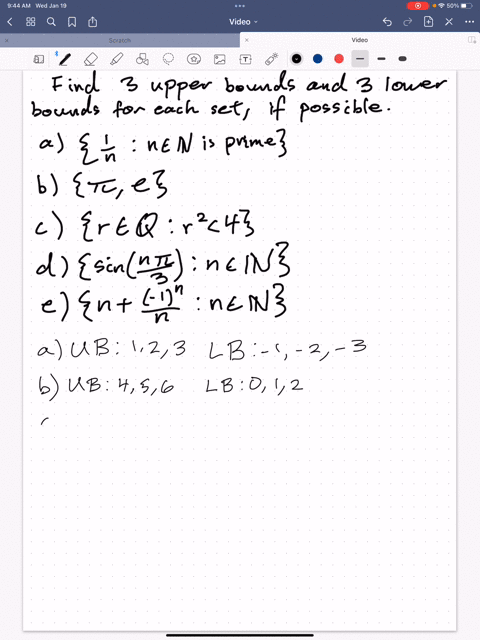 9:44 AM Wed Jan 19
50%
Video
Scratch
Video
Find 3 upper bounds and 3 lower
bounds for each set, if possible.
a) {1/n : n∈ℕ is prime}
b) {π, e}
c) {r∈ℚ : r²<4}
d) {sin(nπ/3) : n∈ℕ}
e) {n + (-1)ⁿ/n : n∈ℕ}
a) UB: 1, 2, 3 LB: -1, -2, -3
b) UB: 4, 5, 6 LB: 0, 1, 2